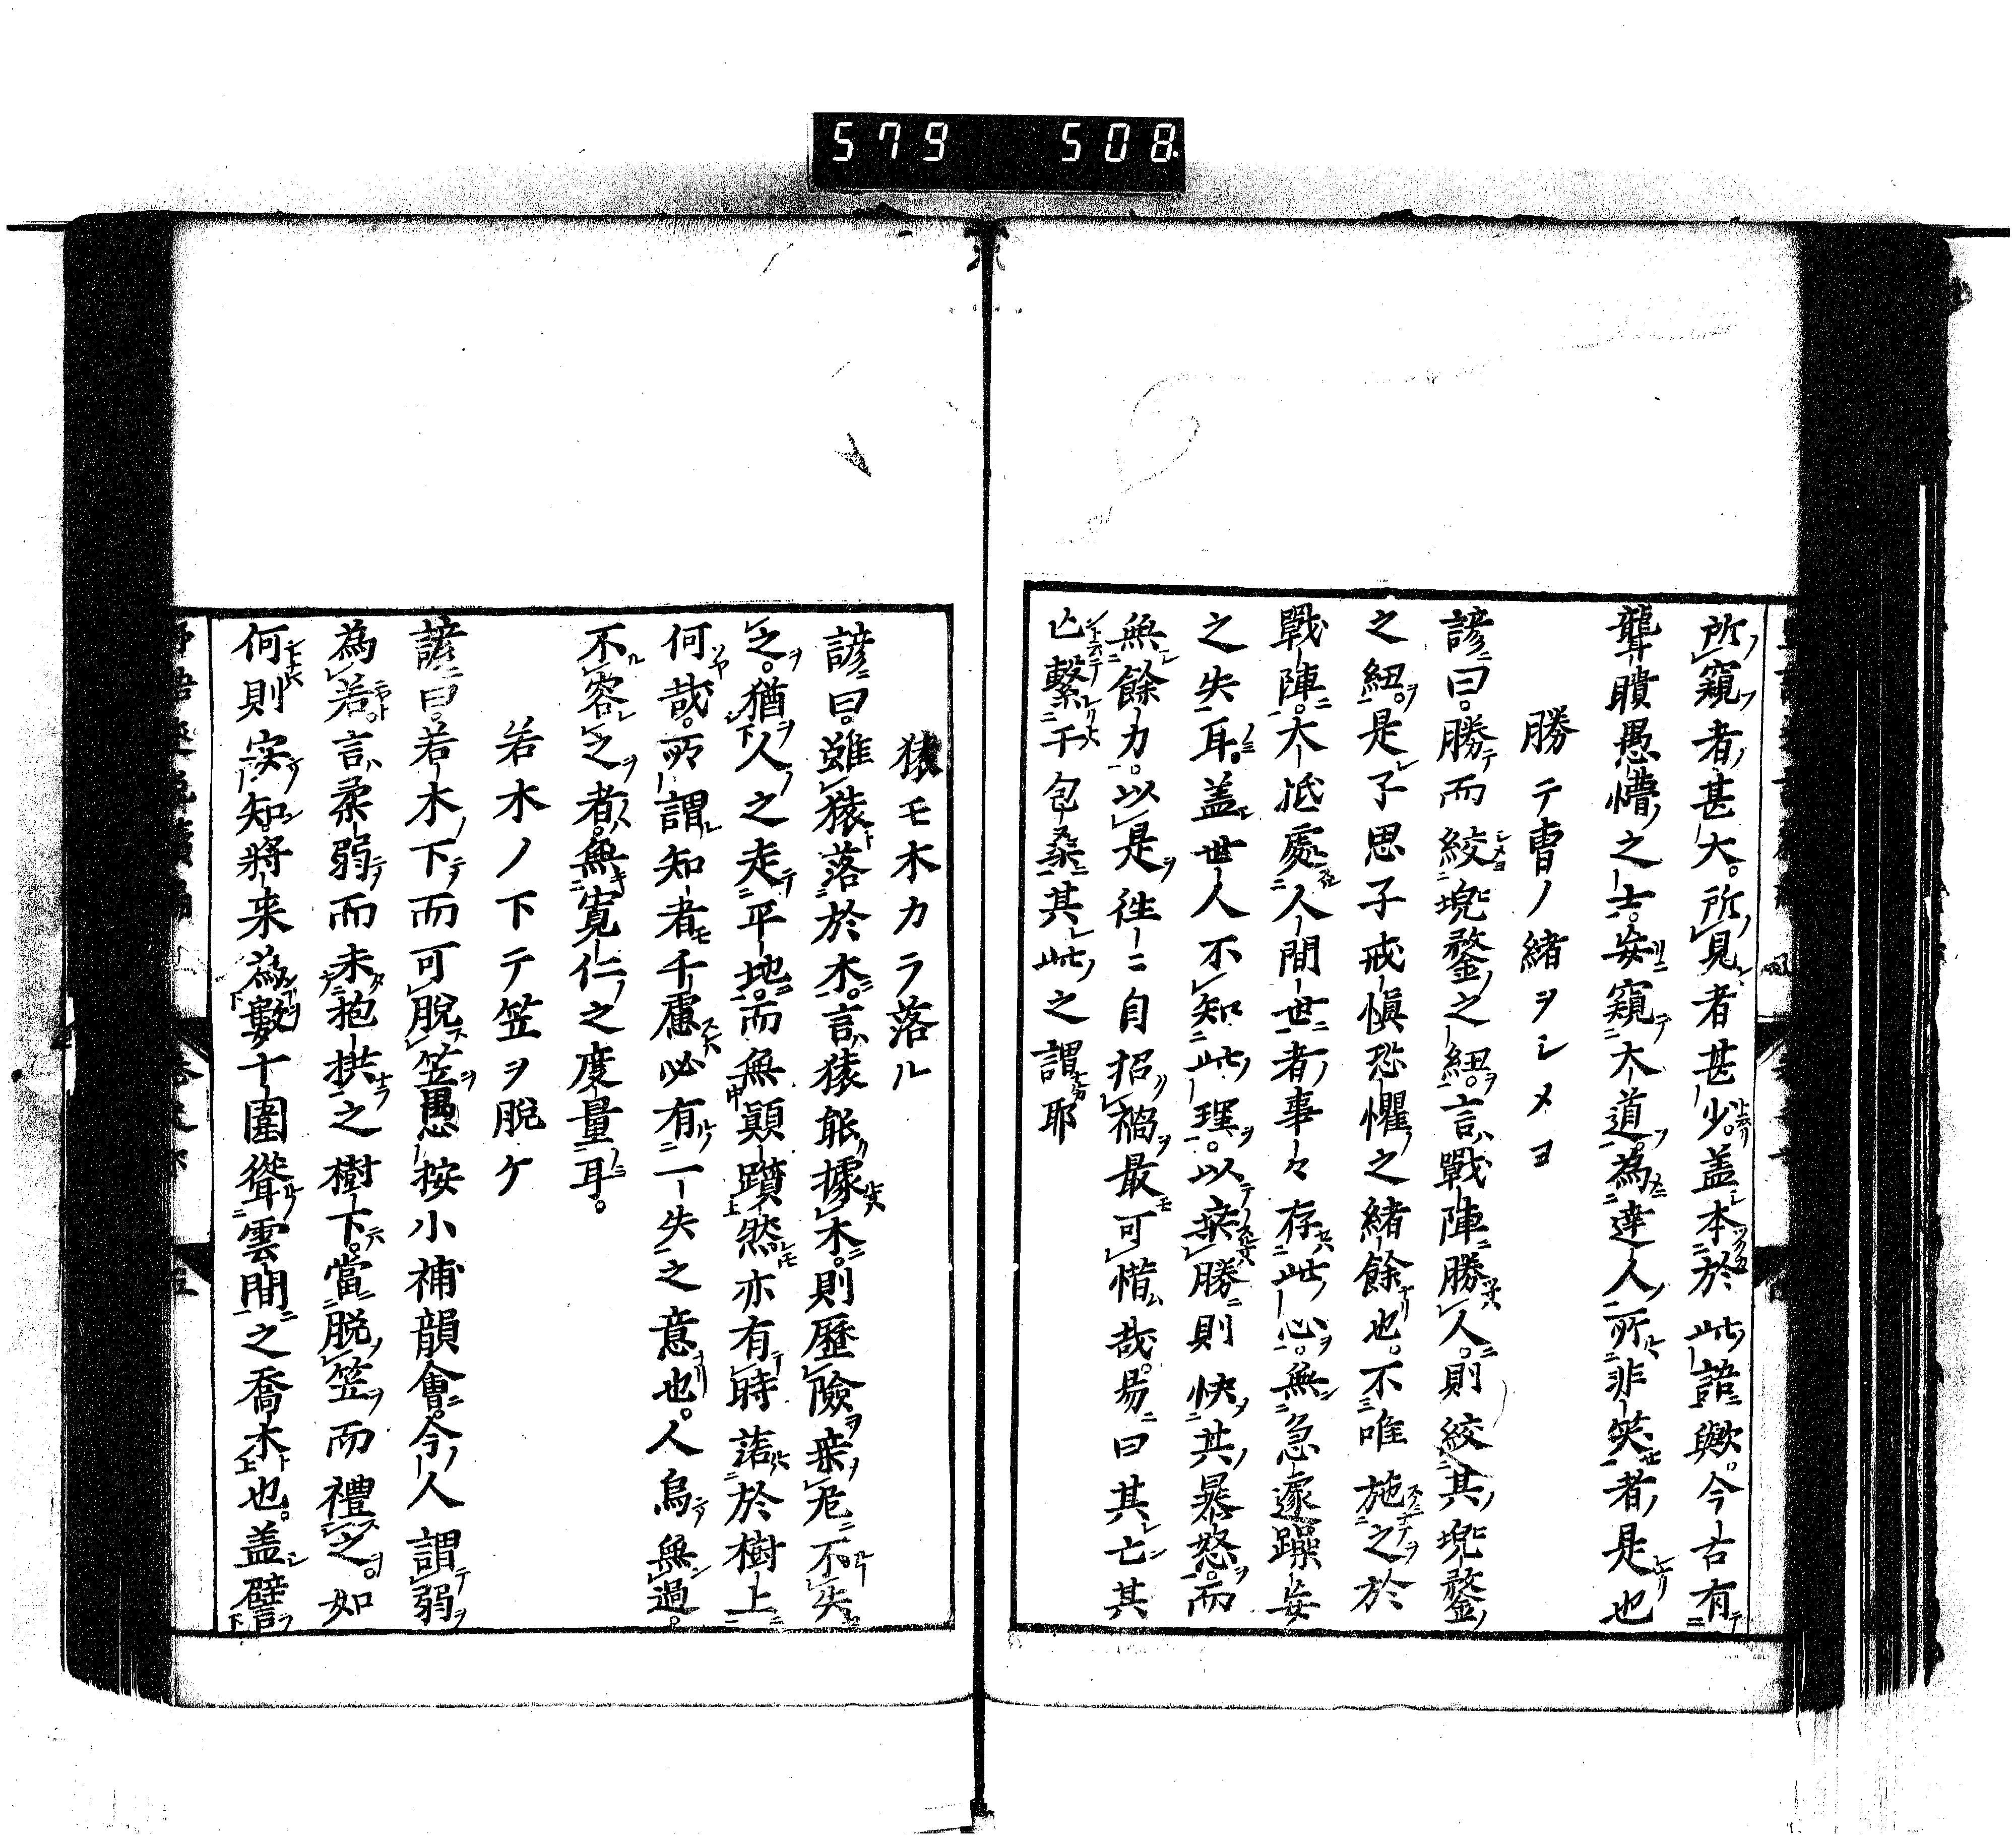 579 508
所窺者甚大。所見者甚少。盖本於此語歟。今古有
聾聵愚懵之士。妄窺大道。為達人所非笑者。是也
勝テ冑ノ緒ヲシメヨ
諺曰。勝而絞兠鍪之紐。言戰陣勝人。則絞其兠鍪
之紐。是子思子戒愼恐懼之緒餘也。不唯施之於
戰陣。大抵處人間世者。事々存此心。無急遽躁妄
之失耳。盖世人不知此理。以乗勝則快其暴怒。而
無餘力。以是徃二自招禍。最可惜哉。易曰其亡其
亡繫于包桑。其此之謂耶
猿モ木カラ落ル
諺曰。雖猿落於木。言猿能據木。則歷險乗危不失
之。猶人之走平地。而無顚躓。然亦有時落於樹上
何哉。所謂知者千慮必有一失之意也。人烏無過。
不容之者。無寛仁之度量耳。
若木ノ下テ笠ヲ脫ケ
諺曰。若木下而可脫笠愚按小補韻會。今人謂弱
為若。言柔弱而未抱拱之樹下。當脫笠而禮之。如
何則安知將来為數十圍聳雲間之喬木也。盖譬